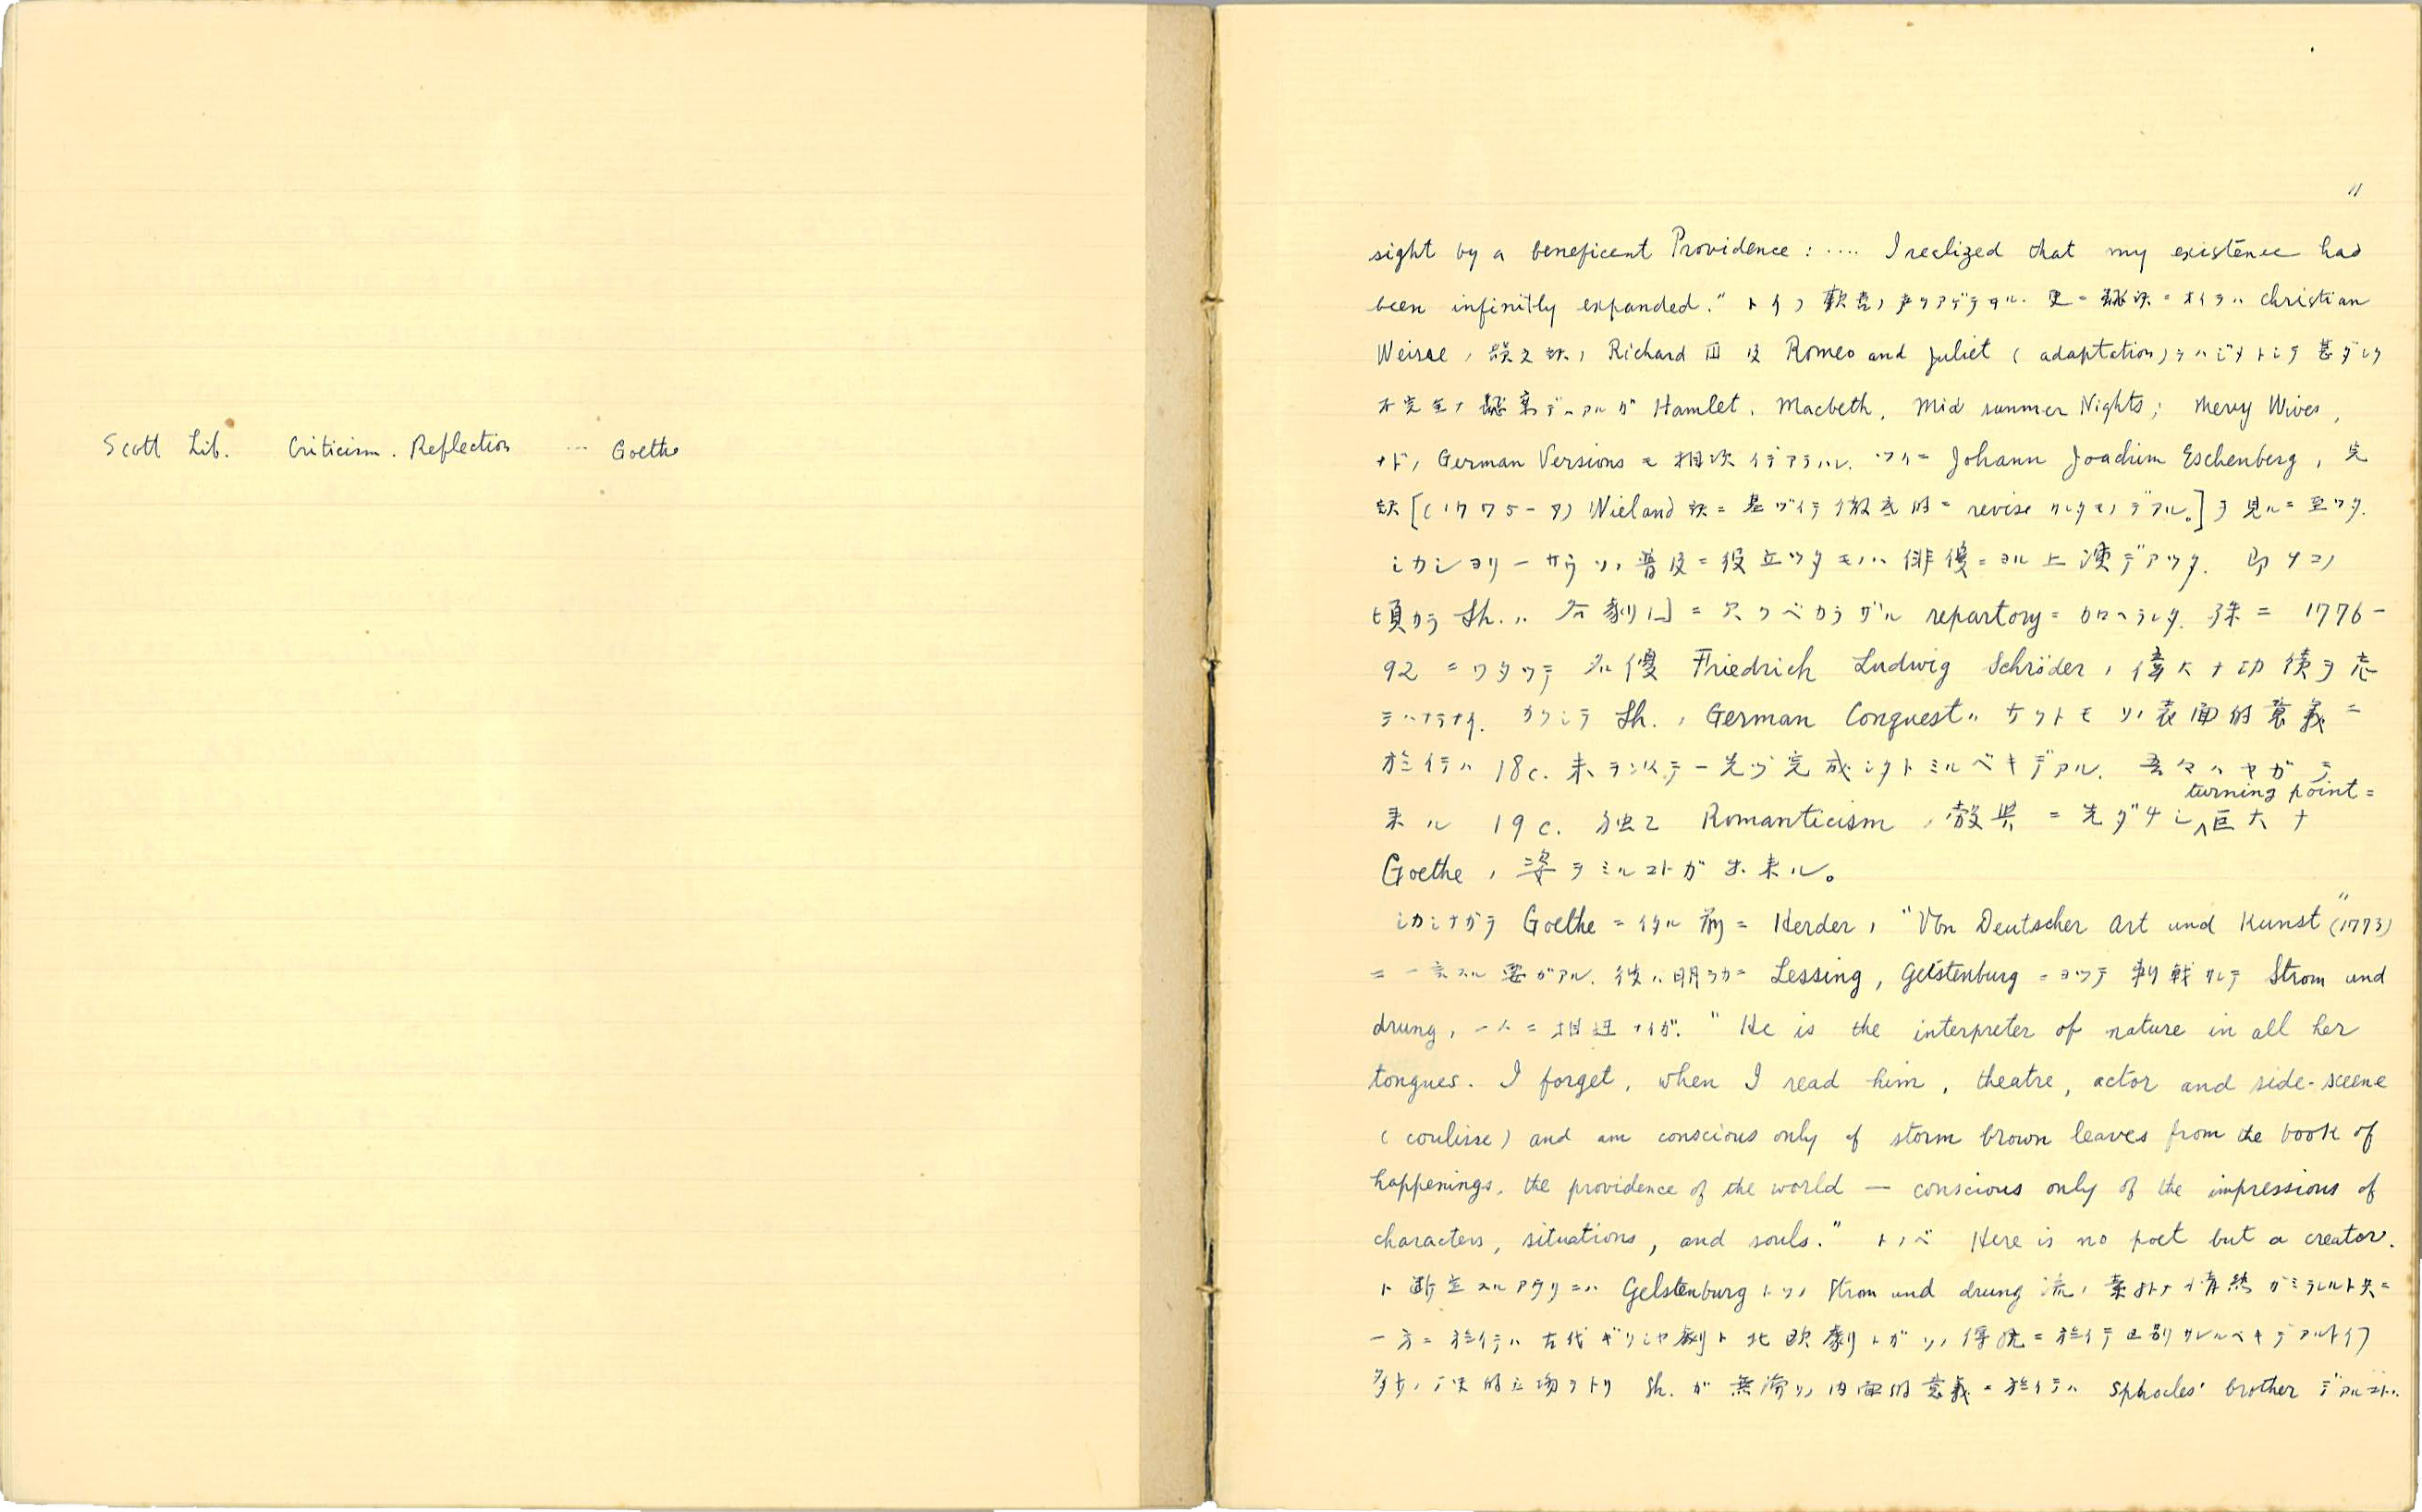 Scott Lib. Criticism. Reflection ... Goethe
11
sight by a beneficent Providence : .... I realized that my existence had
been infinitly expanded." トイフ 歓喜ノ声ヲアゲテヰル. 更ニ 飜訳ニオイテハ Christian
Weisse ノ 韻文訳ノ Richard III 及 Romeo and Juliet ( adaptation) ヲハジメトシテ 甚ダシク
不完全ナ 飜案デハアルガ Hamlet, Macbeth, Mid summer Nights; Merry Wives,
ナド, German Versions モ 相次イデアラハレ, ツイニ Johann Joachim Eschenberg ノ 完
訳 [(1775-7) Wieland 訳ニ 基ヅイテ 徹底的ニ revise サレタモノデアル。] ヲ 見ルニ至ツタ.
シカシヨリ一サウソノ普及ニ役立ツタモノハ俳優ニヨル上演デアツタ. 即チコノ
頃カラ Sh. ハ 各劇団ニ欠クベカラザル repartory ニ加ヘラレタ. 殊ニ 1776-
92 ニワタツテ 名優 Friedrich Ludwig Schröder ノ 偉大ナ功績ヲ忘
ラハナラナイ. カクシテ Sh. ノ German Conquest ハ 少クトモ ソノ表面的意義ニ
於イテハ 18c. 末 一先ヅ完成シタトミルベキデアル. 吾々ハヤガテ
turning point ニ
来ル 19c. 独乙 Romanticism ノ 先ダチシ 巨大ナ
Goethe ノ 姿ヲミルコトガ出来ル。
シカシナガラ Goethe ニイタル前ニ Herder ノ "Von Deutscher Art und Kunst" (1773)
ニ一言スル要ガアル. 彼ハ明ラカニ Lessing, Gelstenburg ニヨツテ刺戟サレテ Strom und
drung ノ一人ニ相違ナイガ. "He is the interpreter of nature in all her
tongues. I forget, when I read him, theatre, actor and side-sceene
( coulisse) and am conscious only of storm brown leaves from the book of
happenings, the providence of the world — conscious only of the impressions of
characters, situations, and souls." トノベ Here is no poet but a creator.
ト断定スルアタリニハ Gelstenburg トソノ Strom und drung 流ノ 情熱ガミラレルト共ニ
一方ニ於イテハ古代ギリシヤ劇ト北欧劇トガソノ伝統ニ於イテ区別サレルベキデアルトイフ
多少ノ 的立場ヲトリ Sh. ガ 無論ソノ内面的意義ニ於イテハ Sphocles' brother デアルコト